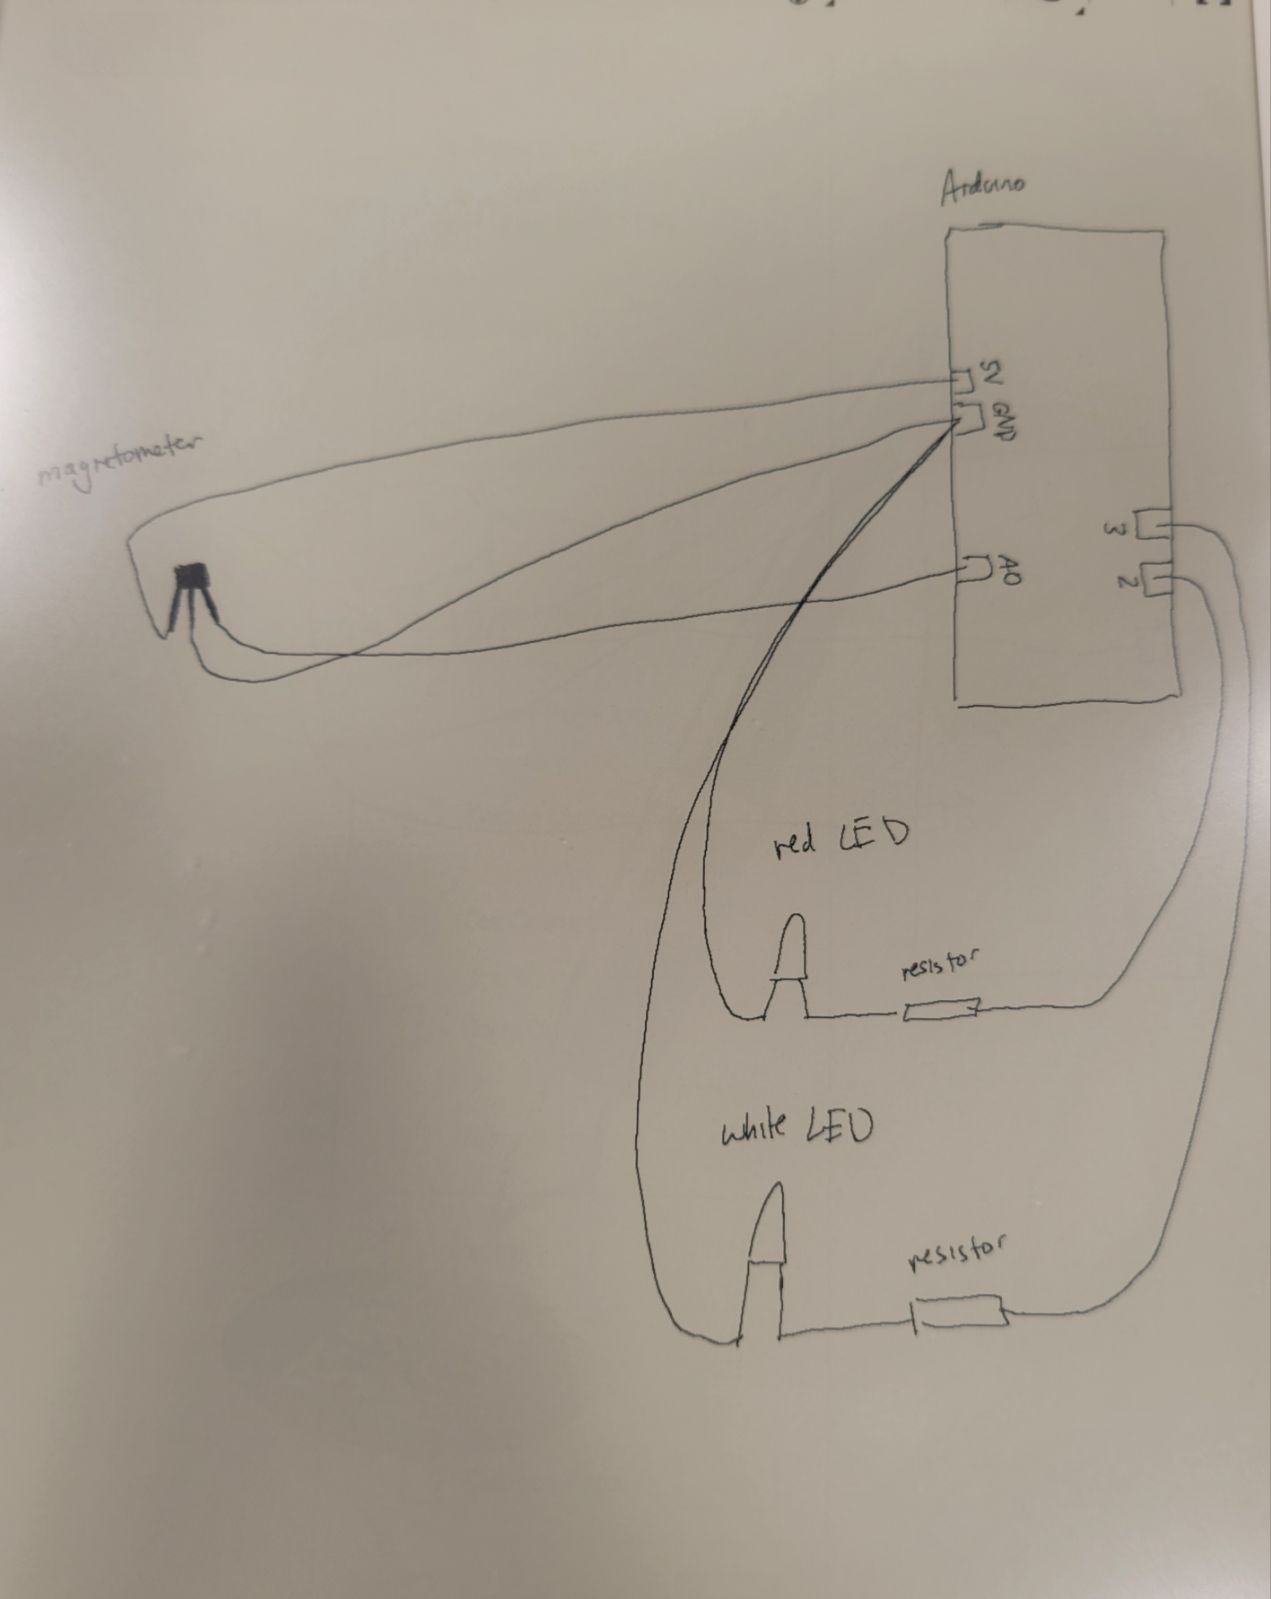 Arduino
5V
GND
magnetometer
3
A0
2
red LED
resistor
white LED
resistor